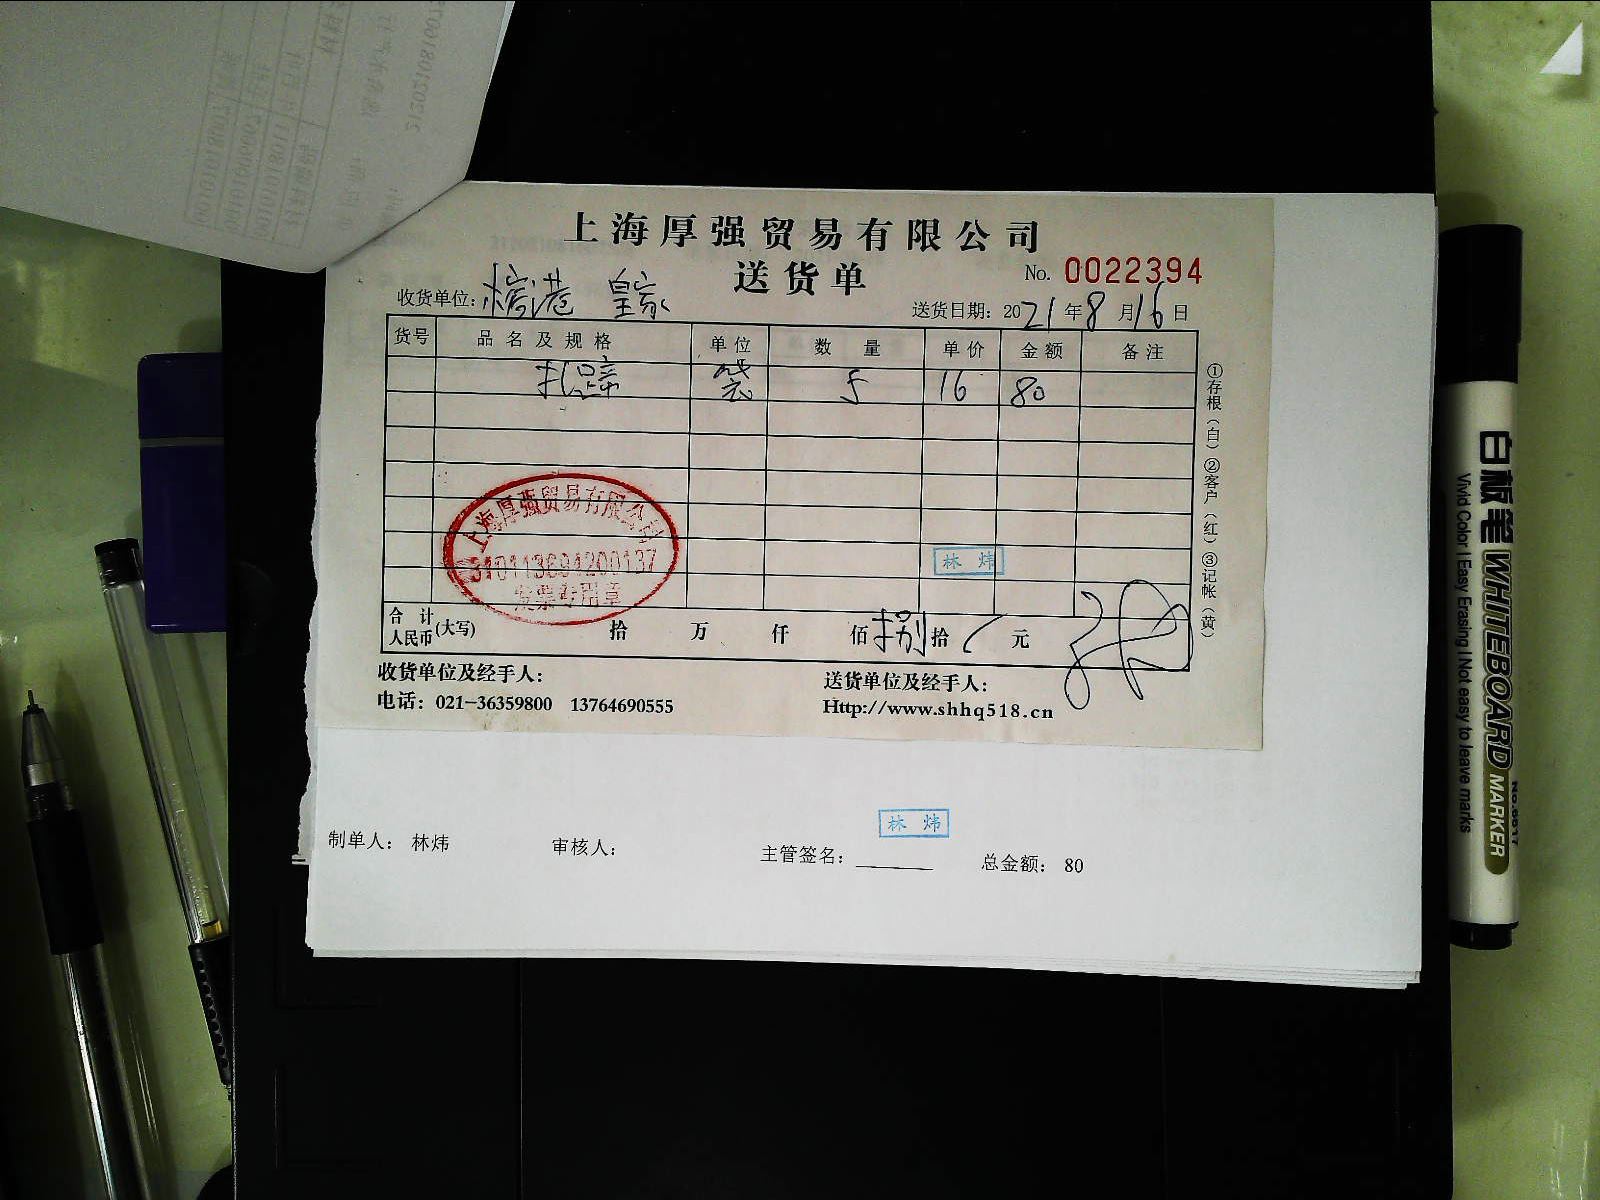 上海厚强贸易有限公司
送货单
No. 0022394
收货单位: 港 皇家
送货日期: 2021年8月16日
货号 品名及规格 单位 数量 单价 金额 备注
袋 5 16 80
①存根(白) ②客户(红) ③记帐(黄)
上海厚强贸易有限公司
310113694200137
发票专用章
林炜
合计
人民币
(大写) 拾 万 仟 佰 捌 拾 元
收货单位及经手人:
送货单位及经手人:
电话: 021-36359800 13764690555
Http://www.shhq518.cn
林炜
制单人: 林炜 审核人: 主管签名: 总金额: 80
白板笔 WHITEBOARD MARKER
Vivid Color | Easy Erasing | Not easy to leave marks